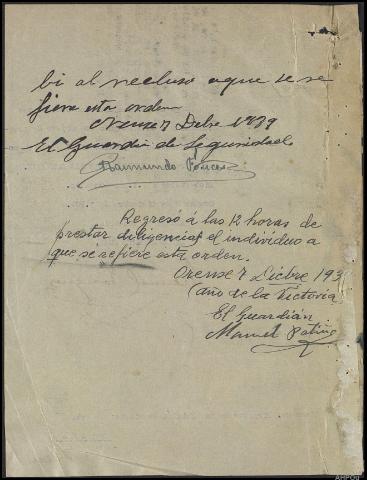 bi al recluso aque se re
fiere esta orden
Orense 7 Dcbre 1939
El Guardia de Seguridad
Raimundo
Regresó á las 12 horas de
prestar diligencias el individuo a
que se refiere esta orden.
Orense 7 Dicbre 193
(año de la Victoria
El Guardián
Manuel Patiño
AHPOu